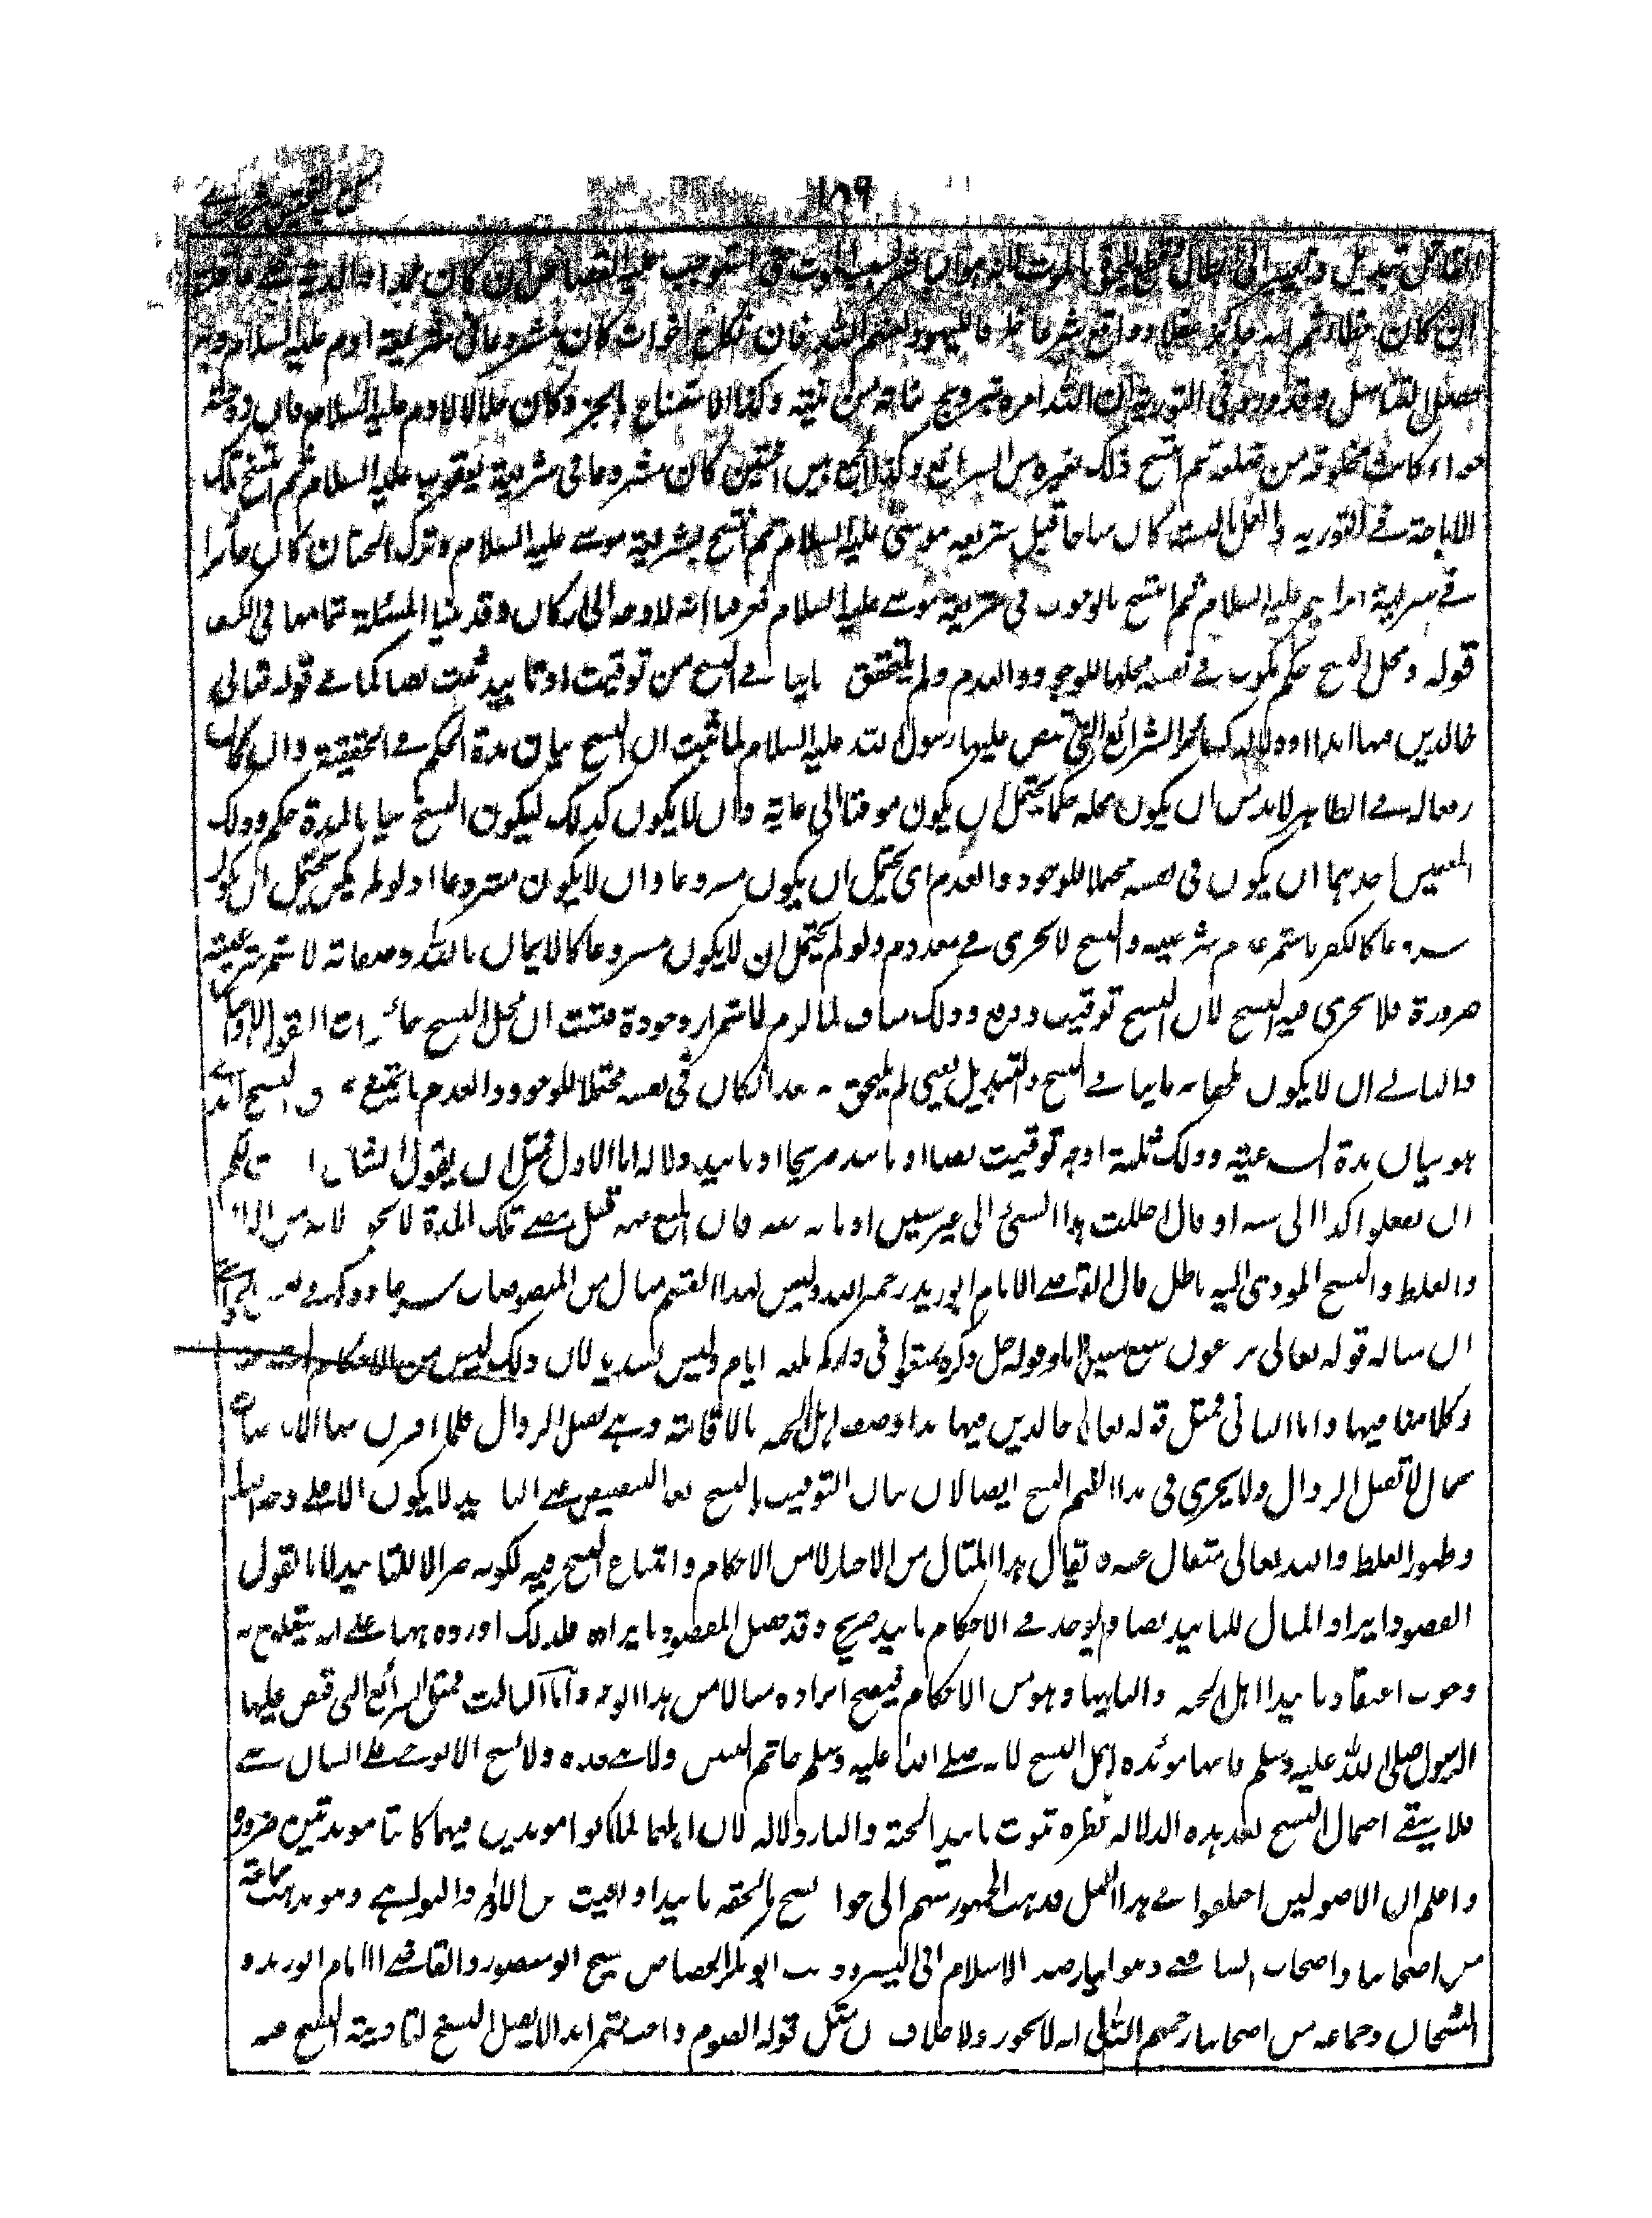 ١٨٩
ان كان خطأ ثم انه جائز عقلا وواقع شرعا خلافا لليهود لعنهم الله فان نكاح الاخوات كان مشروعا في شريعة آدم عليه السلام وبه
حصل التناسل وقد ورد في التورية ان الله امره بتزويج بناته من بنيه وكذا الاستمتاع بالجزء كان حلالا لآدم عليه السلام فان زوجته
حواء كانت مخلوقة من ضلعه ثم انتسخ ذلك بغيره من الشرائع وكذا الجمع بين الاختين كان مشروعا في شريعة يعقوب عليه السلام ثم انتسخ تلك
الاباحة في التورية والعمل بالسبت كان مباحا قبل شريعة موسى عليه السلام ثم انتسخ بشريعة موسى عليه السلام وترك الختان كان جائزا
في شريعة ابراهيم عليه السلام ثم انتسخ بالوجوب في شريعة موسى عليه السلام فعرفنا انه لا وجه الى انكاره وقد بينا المسئلة بتمامها في الكشف
قوله ومحل النسخ حكم يكون في نفسه محتملا للوجود والعدم ولم يلتحق به ما ينافي النسخ من توقيت او تابيد ثبت نصا كما في قوله تعالى
خالدين فيها ابدا او دلالة كسائر الشرائع التي قبض عليها رسول الله عليه السلام لما ثبت ان النسخ بيان مدة الحكم في الحقيقة وان كان
رفعا له في الظاهر لا بد من ان يكون محله حكما يحتمل ان يكون موقتا الى غاية وان لا يكون كذلك ليكون النسخ بيانا لمدة حكمه وذلك
بمعنيين احدهما ان يكون في نفسه محتملا للوجود والعدم اي يحتمل ان يكون مشروعا وان لا يكون مشروعا اذ لو لم يكن يحتمل ان يكون
مشروعا كالكفر يستمر عدم شرعيته والنسخ لا يجري في معدوم ولو لم يحتمل ان لا يكون مشروعا كالايمان بالله وصفاته لاستمر شرعيته
ضرورة فلا يجري فيه النسخ لان النسخ توقيت ورفع وذلك مناف لما لزم استمرار وجوده فثبت ان محل النسخ
والثاني ان لا يكون ملحقا به ما ينافي النسخ والتبديل يعني لم يلتحق به بعد ان كان في نفسه محتملا للوجود والعدم ما يمتنع به النسخ الذي
هو بيان مدة المشروعية وذلك ثلثة اوجه توقيت نصا او تابيد صريحا او تابيد دلالة اما الاول فمثل ان يقول الشارع
ان تفعلوا كذا الى سنة او قال احللت هذا الشيء الى عشر سنين او مائة سنة فان المنع منه قبل مضي تلك المدة لا يجوز لانه من البداء
والغلط والنسخ المودي اليه باطل قال القاضي الامام ابو زيد رحمه الله وليس لهذا القسم مثال من المنصوصات شرعا
ان مثاله قوله تعالى تزرعون سبع سنين دابا وقوله جل ذكره تمتعوا في داركم ثلثة ايام وليس بسديد لان ذلك ليس من الاحكام
وكلامنا فيها واما الثاني فمثل قوله تعالى خالدين فيها ابدا وصف اهل الجنة بالاقامة وهي تقبل الزوال فلما اقترن بها الابد صارت
بحال لا تقبل الزوال ولا يجري في هذا القسم النسخ ايضا لان بيان التوقيت بالنسخ بعد التنصيص على التابيد لا يكون الا على وجه البداء
وظهور الغلط والله تعالى متعال عنه لا يقال هذا المثال من الاخبار لا من الاحكام وامتناع النسخ فيه لكونه خبرا لا للتابيد لانا نقول
المقصود ايراد المثال للتابيد نصا ولم يوجد في الاحكام تابيد صريح وقد حصل المقصود بايراده فلذلك اورده ههنا على انه يتعلق به
وجوب اعتقاد تابيد اهل الجنة والنار فيها وهو من الاحكام فيصح ايراده مثالا من هذا الوجه واما الثالث فمثل الشرائع التي قبض عليها
الرسول صلى الله عليه وسلم فانها مؤبدة لا يحتمل النسخ لانه صلى الله عليه وسلم خاتم النبيين ولا نبي بعده ولا نسخ الا بوحي على لسان نبي
فلا يبقى احتمال النسخ بعد هذه الدلالة نظيره ثبوت تابيد الجنة والنار دلالة لان اهلهما لما كانوا موبدين فيهما كانتا موبدتين ضرورة
واعلم ان الاصوليين اختلفوا في هذا الفصل فذهب الجمهور منهم الى جواز نسخ ما لحقه تابيد او توقيت من الاوامر والنواهي وهو مذهب جماعة
من اصحابنا واصحاب الشافعي وهو اختيار صدر الاسلام ابي اليسر وذهب ابو بكر الجصاص والشيخ ابو منصور والقاضي الامام ابو زيد و
الشيخان وجماعة من اصحابنا رحمهم الله الى انه لا يجوز ولا خلاف ان مثل قوله الصوم واجب مستمر ابدا لا يقبل النسخ لتادية النسخ فيه